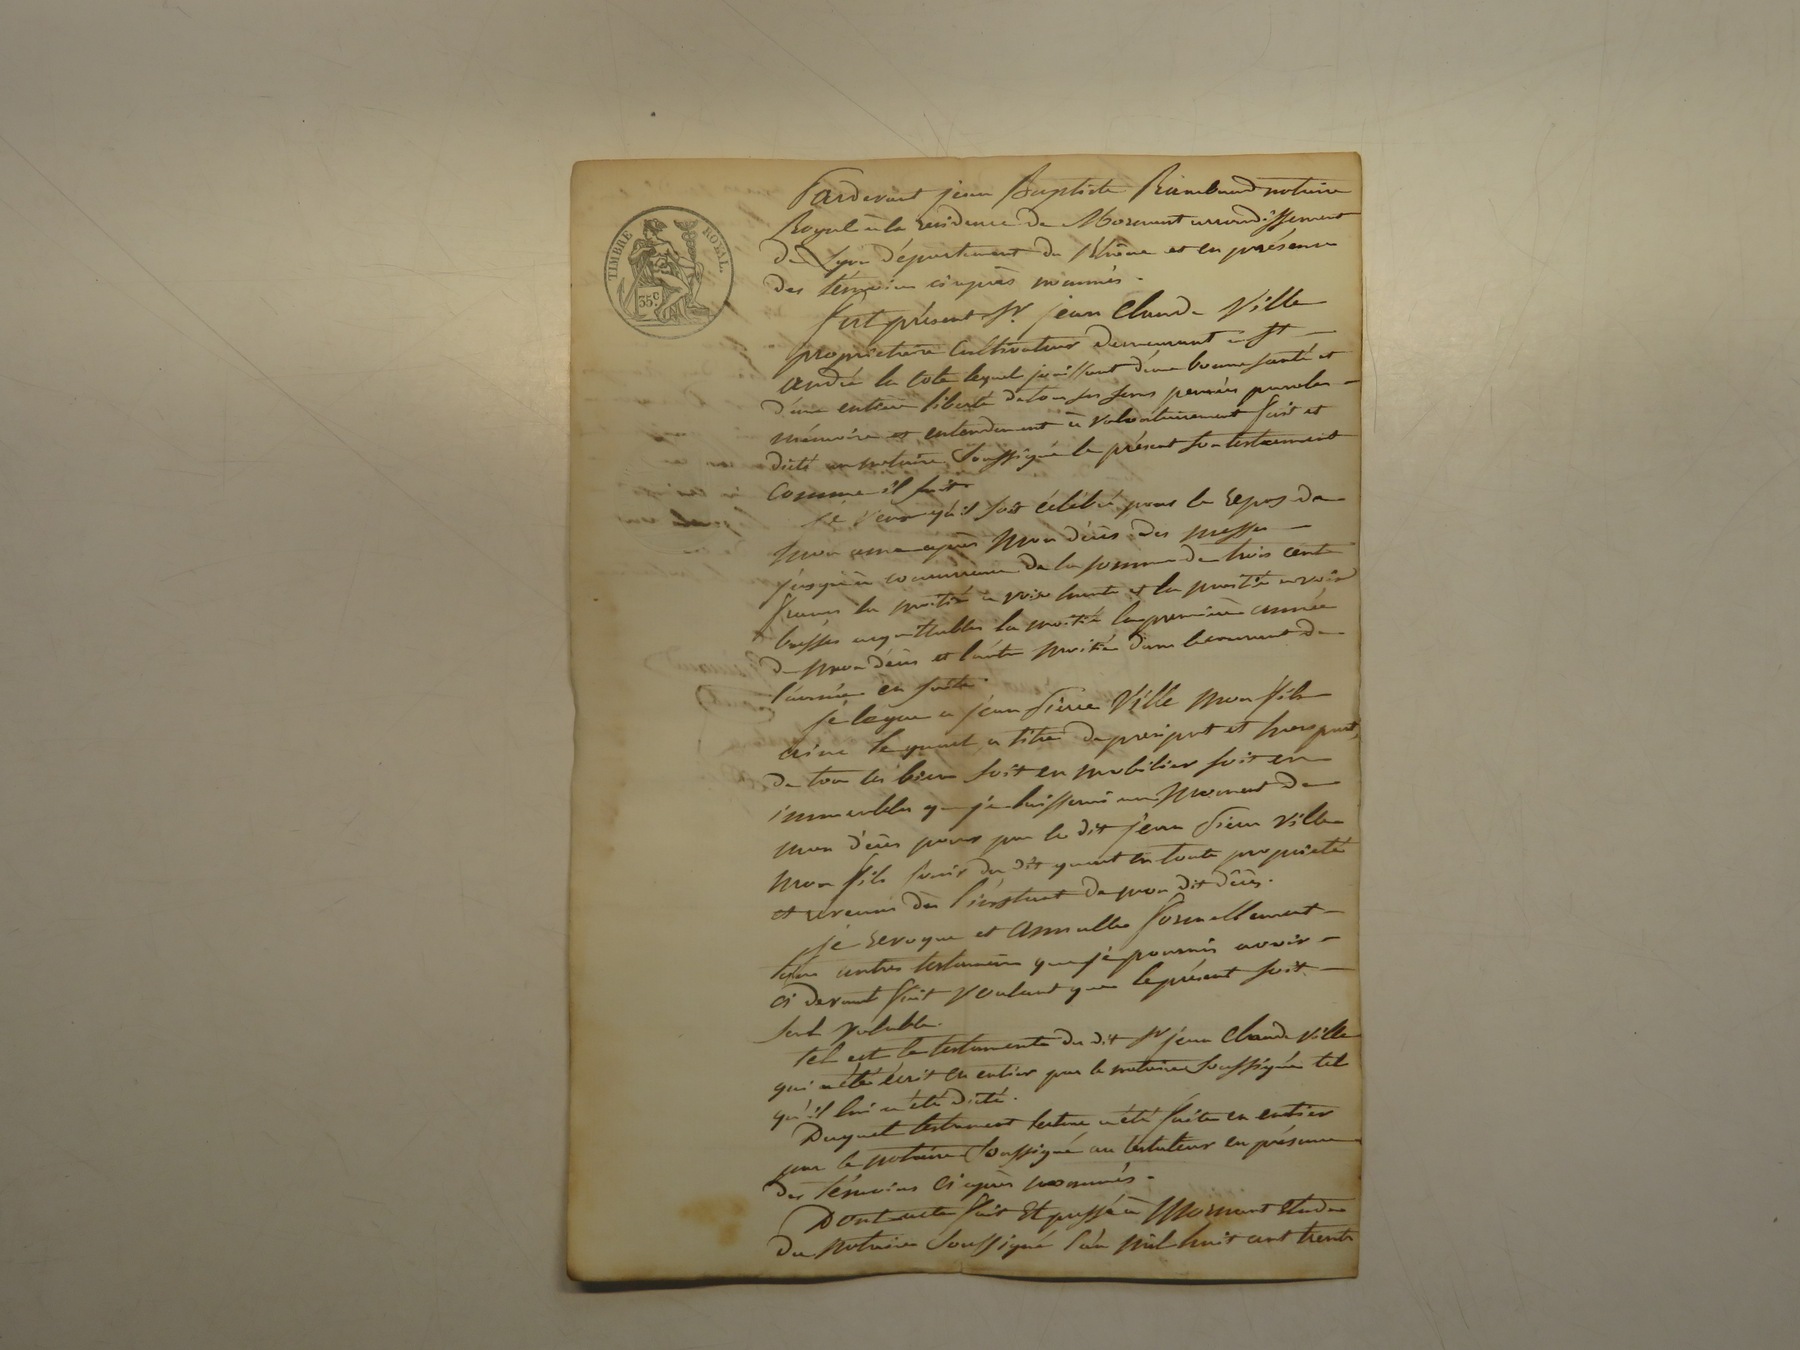 TIMBRE ROYAL.
35 c.
Pardevant jean Baptiste Rambaud notaire
Royal à la residence de Mornant arrondissement
de Lyon département du Rhône et en présence
des témoins ci après nommés.
fut présent Sr. jean Claude Ville
propriétaire cultivateur demeurant à St
andré la cote lequel jouissant d'une bonne santé et
d'une entière liberté de tous ses sens pensées paroles
mémoire et entendement a volontairement fait et
dicté au notaire soussigné le présent son testament
comme il suit
je veux qu'il soit célébré pour le repos de
mon ame après mon décès des messes
jusqu'à concurrence de la somme de trois cents
francs la moitié à voix haute et la moitié à voix
basses acquittables la moitié la première année
de mon décès et l'autre moitié dans le courant de
l'année en suite.
je legue a jean Pierre Ville mon fils
ainé le quart a titre de preciput et hors part,
de tous les biens soit en mobilier soit en
immeubles que je laisserai au moment de
mon décès pour par le dit jean Pierre Ville
mon fils jouir du dit quart en toute propriété
et revenu dès l'instant de mon dit décès.
je revoque et annulle formellement
tous autres testamens que je pourrais avoir
ci devant fait voulant que le présent soit
seul valable.
tel est le testament du dit Sr jean Claude Ville
qui a été écrit en entier par le notaire soussigné tel
qu'il lui a été dicté.
Duquel testament lecture a été faite en entier
par le notaire soussigné au testateur en présence
des témoins ci après nommés.
Dont acte fait et passé à Mornant etude
du notaire soussigné l'an mil huit cent trente